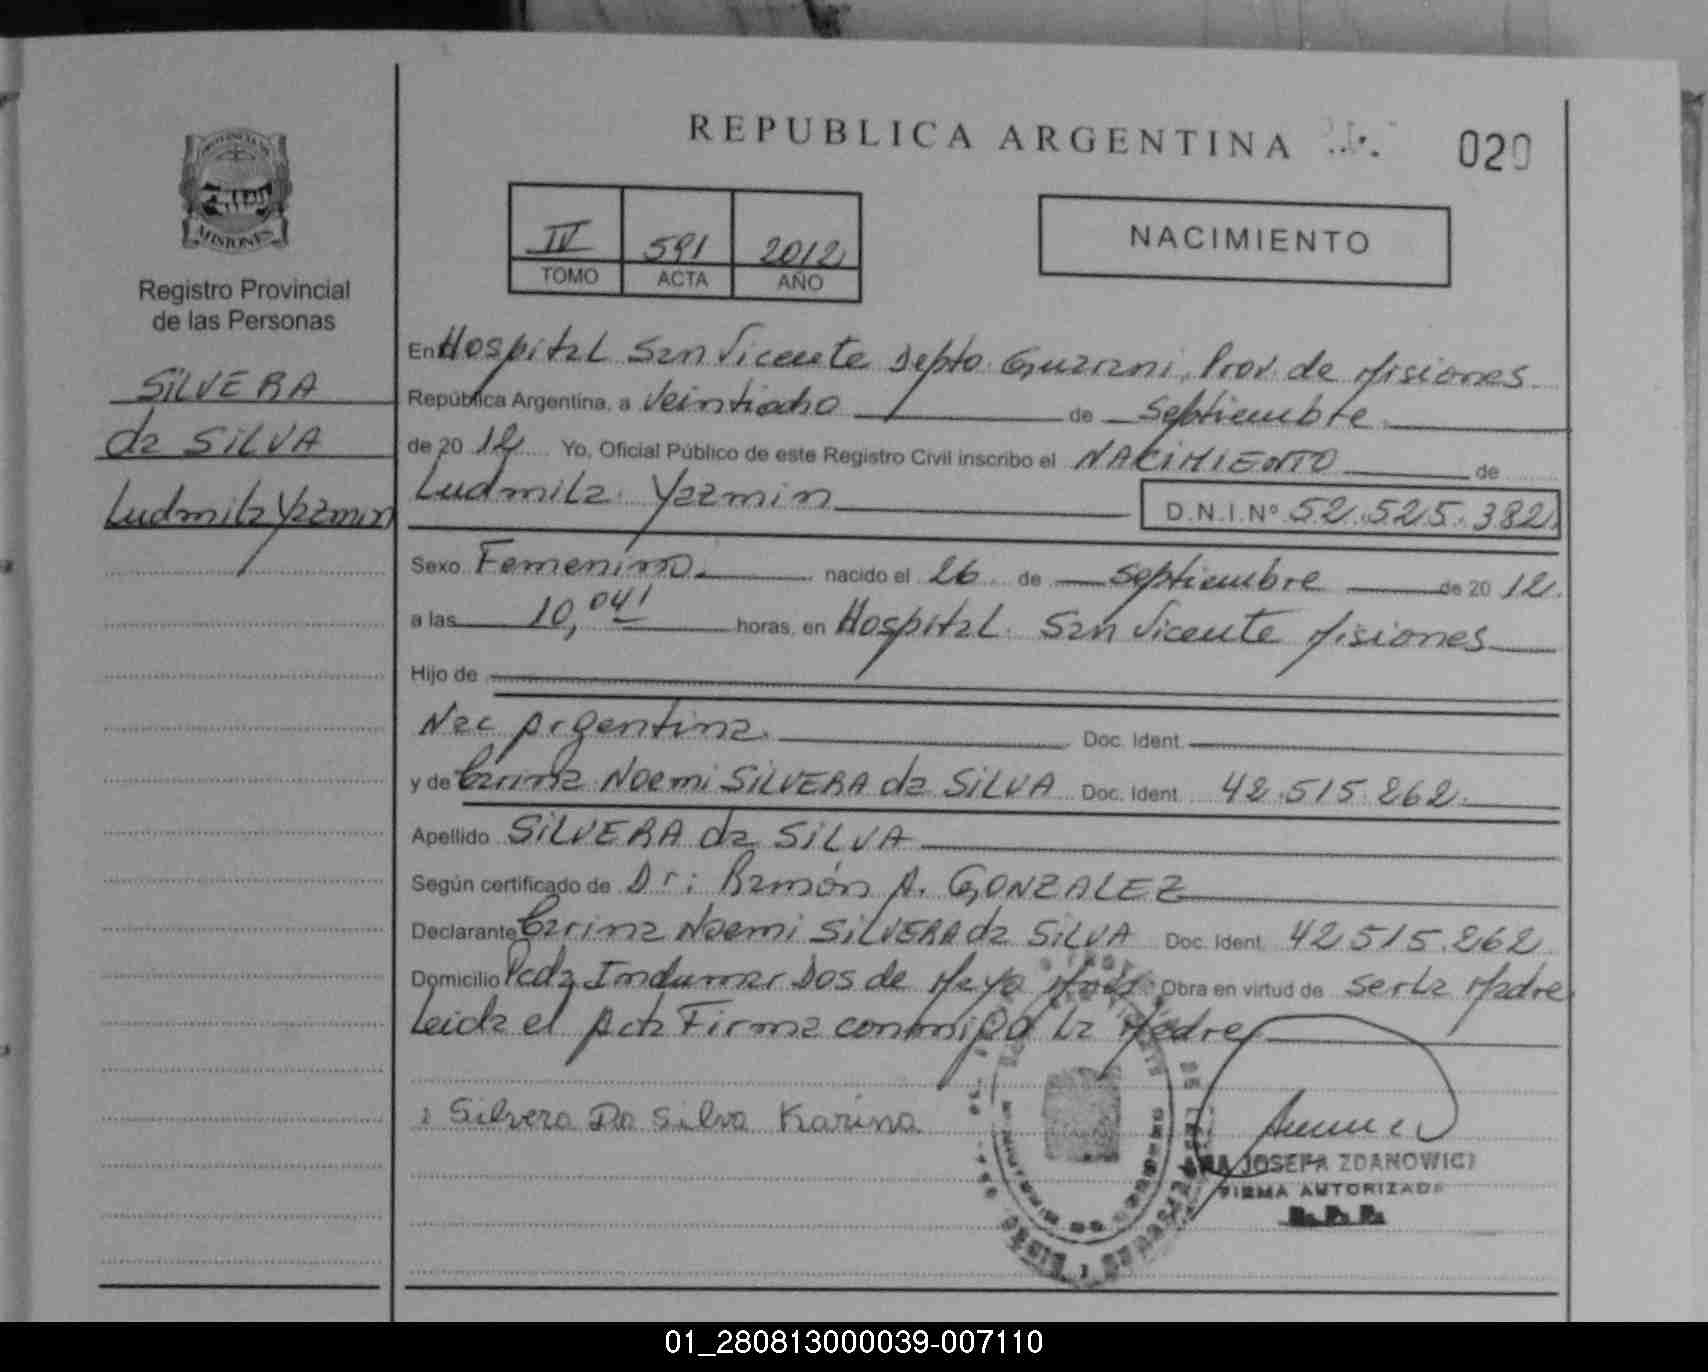 REPUBLICA ARGENTINA
020
PROVINCIA DE
MISIONES
Registro Provincial
de las Personas
SILVERA
da SILVA
Ludmila Yazmin
IV 591 2012
TOMO ACTA AÑO
NACIMIENTO
En Hospital San Vicente Depto. Guarani, Prov. de Misiones
República Argentina, a Veintiocho de Septiembre
de 2012 Yo, Oficial Público de este Registro Civil inscribo el NACIMIENTO de
Ludmila Yazmin D.N.I.Nº 52.525.382
Sexo Femenino nacido el 26 de septiembre de 2012
a las 10,041 horas, en Hospital San Vicente Misiones
Hijo de
Nac Argentina. Doc. Ident.
y de Carina Noemi SILVERA da SILVA Doc. Ident. 42.515.262.
Apellido SILVERA da SILVA
Según certificado de Dr: Ramón A. GONZALEZ
Declarante Carina Noemi SILVERA da SILVA Doc. Ident. 42.515.262
Domicilio Pcda Indumar Dos de Mayo Obra en virtud de ser la Madre
Leida el Acta Firma conmigo la Madre
Silvera Da Silva Karina
JOSEFA ZDANOWICZ
FIRMA AUTORIZADA
R. P. P.
01_280813000039-007110